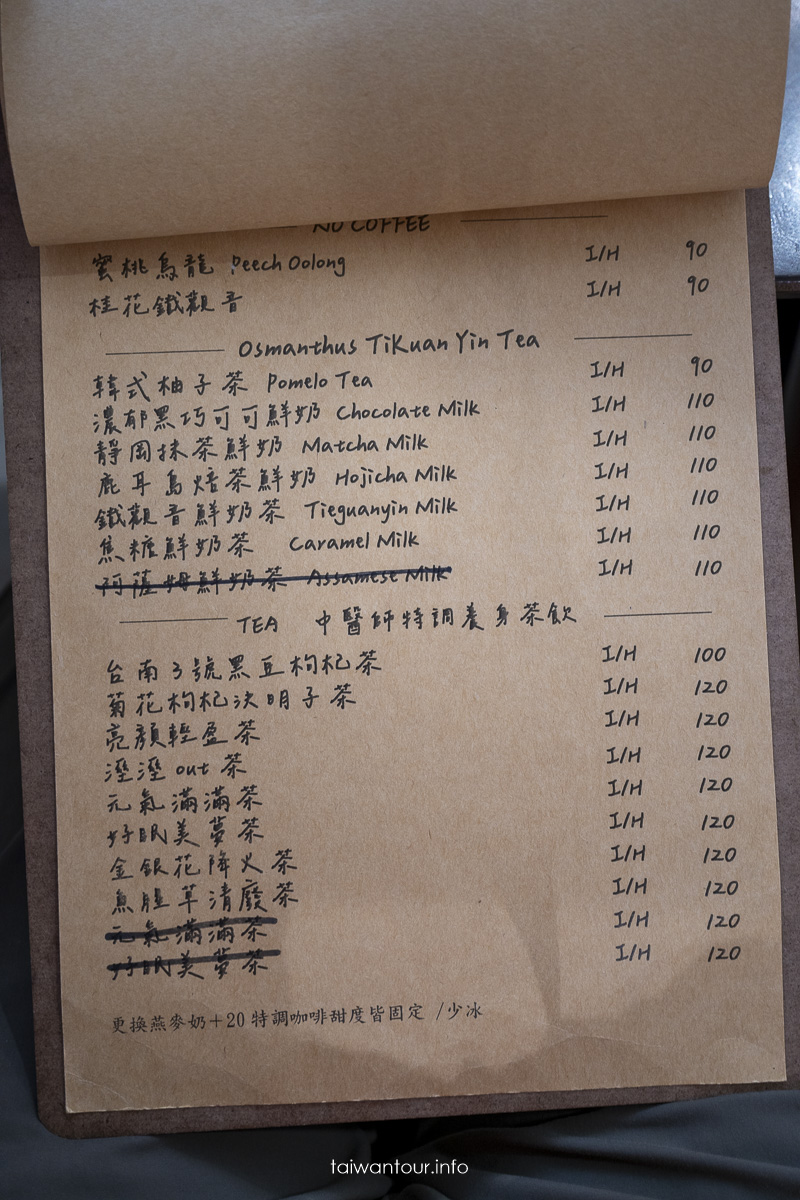 NO COFFEE
蜜桃烏龍 Peech Oolong I/H 90
桂花鐵觀音 I/H 90
Osmanthus TiKuan Yin Tea
韓式柚子茶 Pomelo Tea I/H 90
濃郁黑巧可可鮮奶 Chocolate Milk I/H 110
靜岡抹茶鮮奶 Matcha Milk I/H 110
鹿耳島焙茶鮮奶 Hojicha Milk I/H 110
鐵觀音鮮奶茶 Tieguanyin Milk I/H 110
焦糖鮮奶茶 Caramel Milk I/H 110
阿薩姆鮮奶茶 Assamese Milk I/H 110
TEA 中醫師特調養身茶飲
台南3號黑豆枸杞茶 I/H 100
菊花枸杞決明子茶 I/H 120
亮顏輕盈茶 I/H 120
溼溼out茶 I/H 120
元氣滿滿茶 I/H 120
好眠美夢茶 I/H 120
金銀花降火茶 I/H 120
魚腥草清廢茶 I/H 120
元氣滿滿茶 I/H 120
好眠美夢茶 I/H 120
更換燕麥奶+20 特調咖啡甜度皆固定 /少冰
taiwantour.info